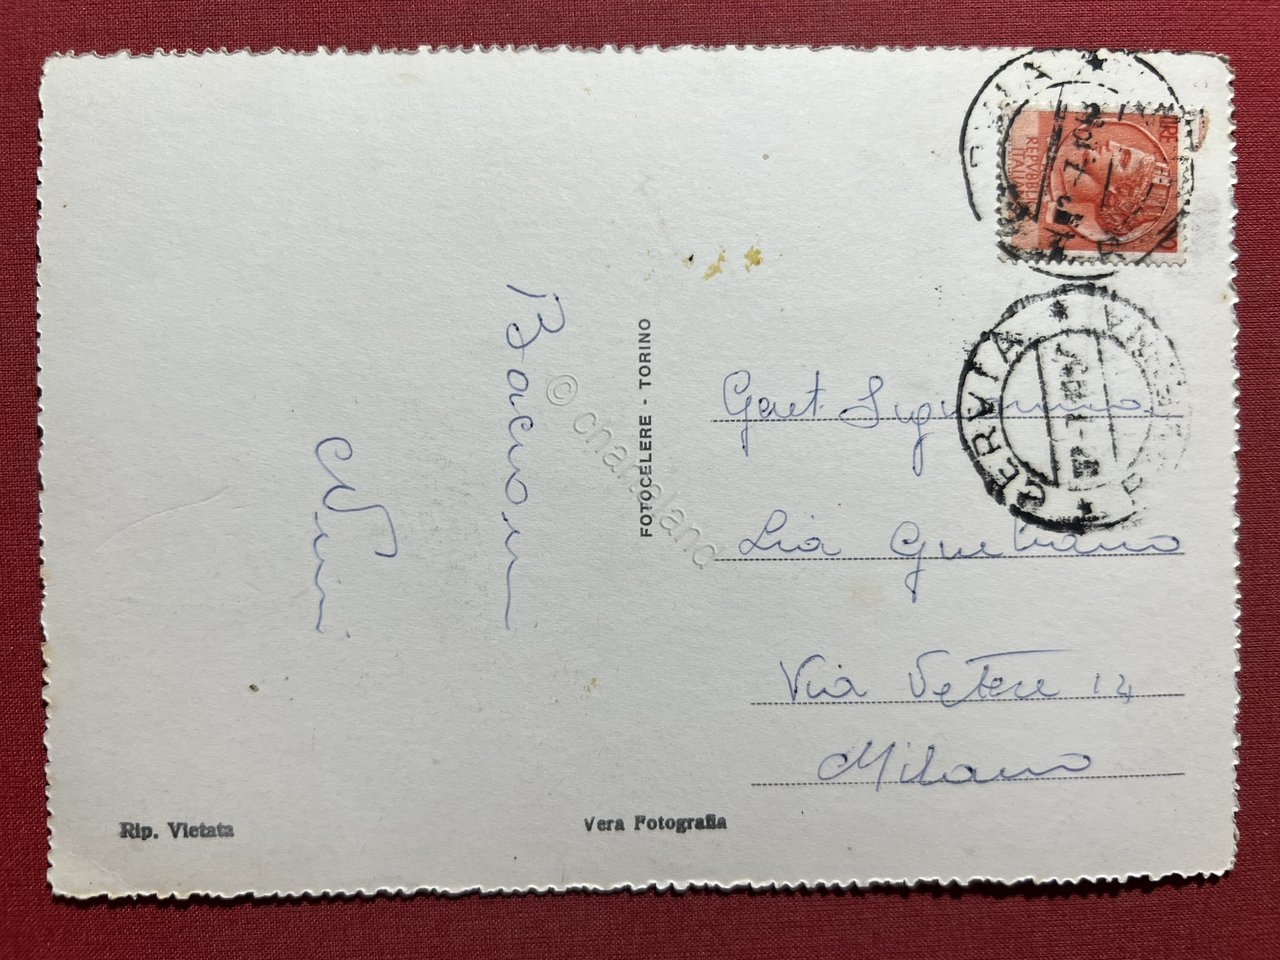 Bacioni
Nini
FOTOCELERE - TORINO
REPVBBLICA
ITALIANA
LIRE
CERVIA
RAVENNA
Gent. Signorina
Lia
Via Vetere 14
Milano
Rip. Vietata
Vera Fotografia
© chartaland